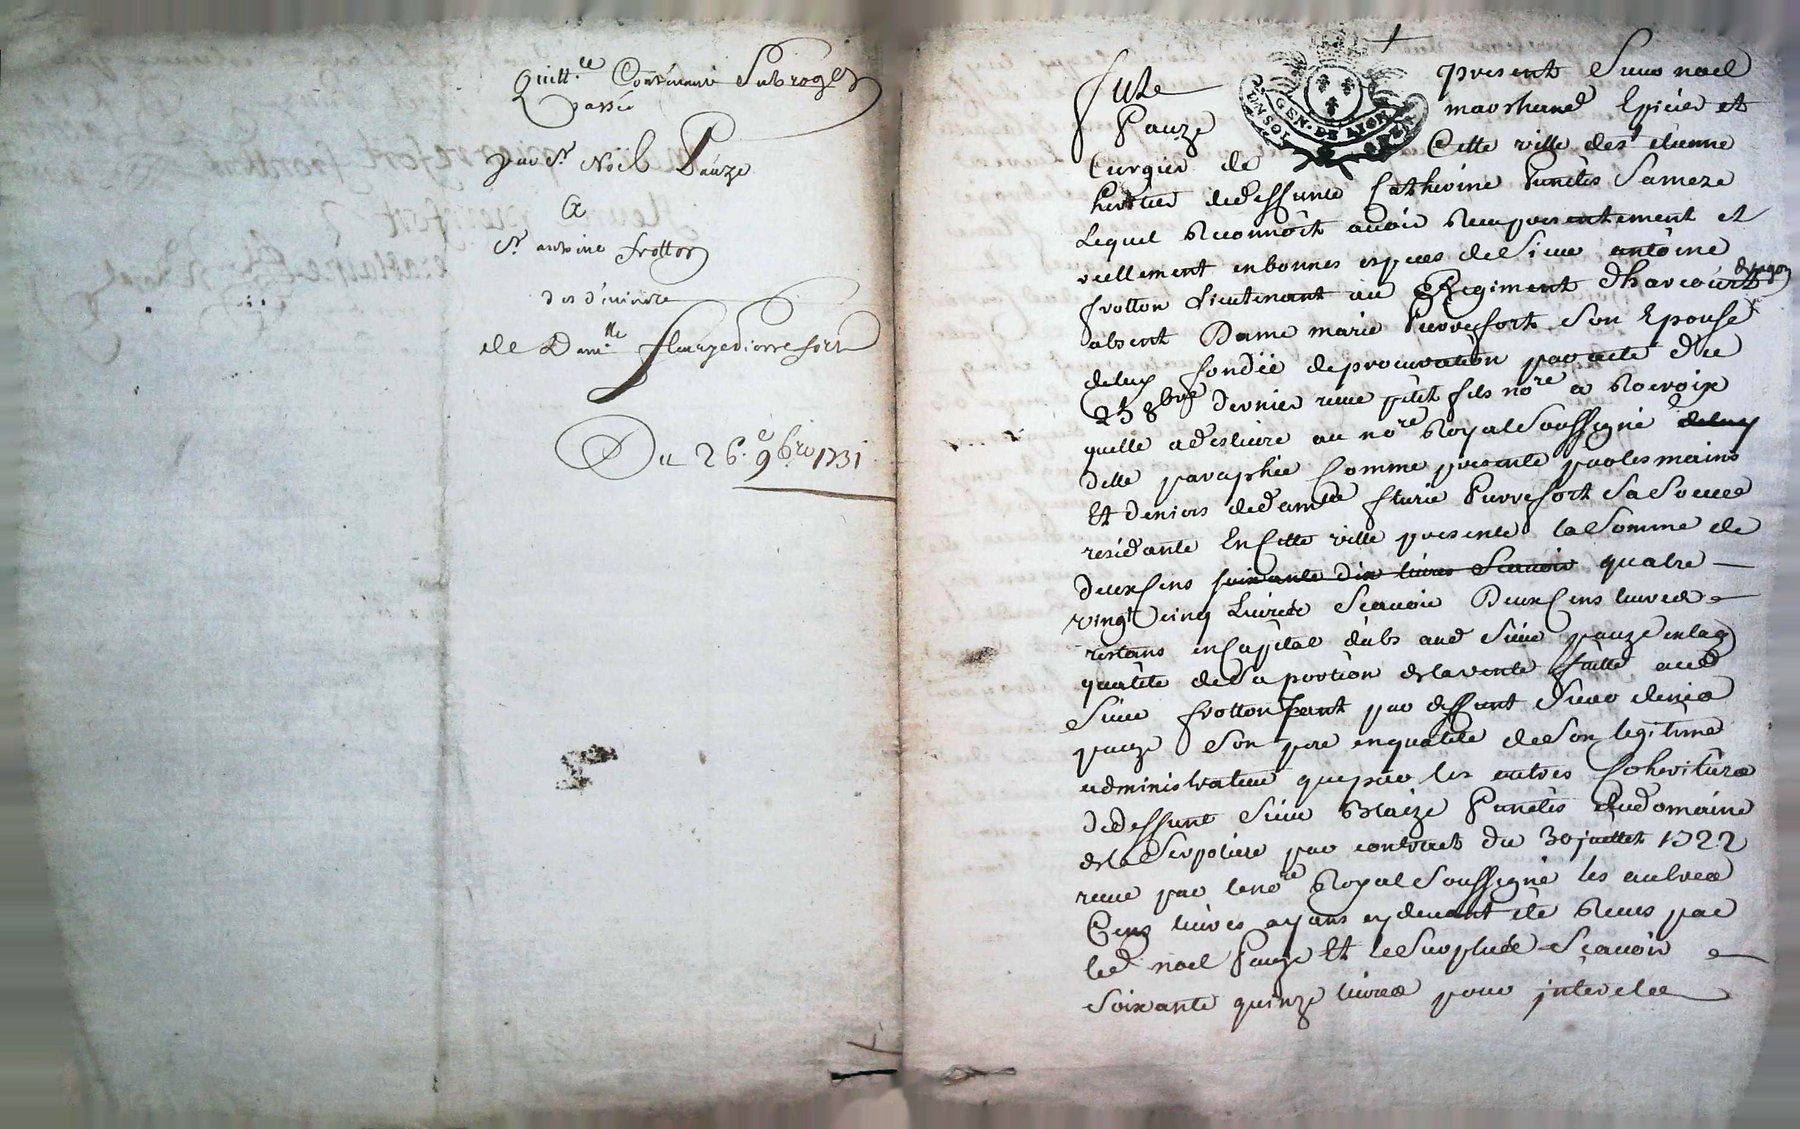 Quitt.ce Contenant Subrog.on
passée
par Sr. Noël Pauze
A
Sr. antoine frotton
des deniers
de Dam.lle fleurye Pierrefort
Du 26.e 9bre 1731
GEN. DE LYON
fut present Sieur noel
Pauze marchand Epicier et
Cirgier de Cette ville de St etienne
heritier de deffunte Catherine Punctis Sa mere
Lequel Reconnoit avoir Reçu presentement et
reellement en bonnes especes de Sieur antoine
frotton Lieutenant au Regiment dharcourt dragon
absent Dame marie Pierrefort Son Epouse
de luy fondée de procuration par acte du
23 8bre dernier reçue petit fils nore a
quelle a deslivré au nore Royal Soussigné de luy
delle paraphée Comme presente par les mains
Et deniers de damlle flurie Pierrefort Sa Soeur
residante En Cette ville presente la Somme de
deux Cens soixante dix livres Scavoir quatre
vingt cinq Livres Scavoir Deux Cens livres
restans en Capital dubs aud Sieur pauze en lad
qualité de Sa portion de la vente faitte aud
Sieur frotton tant par deffunt Sieur denis
pauze Son pere en qualité de Son legitime
administrateur que par les autres Coheritiers
de deffunt Sieur Blaize Punctis du domaine
de la Serpoliere par contract du 30 juillet 1722
reçu par le nore Royal Soussigné les autres
Cens livres ayans cy devant été Reçus par
led noel Pauze Et le Surplus Scavoir
Soixante quinze livres pour interests